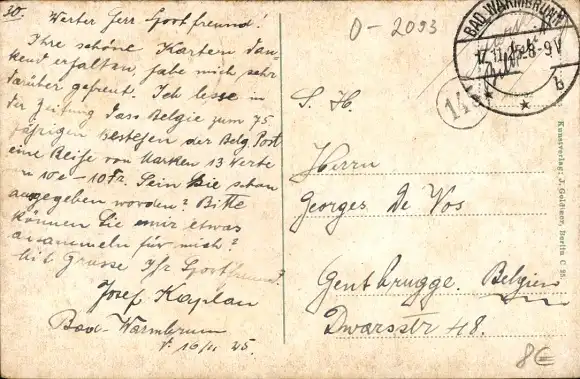 30.
Werter Herr Sportfreund!
Ihre schöne Karten dan-
kend erfalten, habe mich sehr
darüber gefreut. Ich lese in
der Zeitung dass Belgie zum 75
jährigen Bestehen der Belg. Post
eine Reife von Marken 13 Werte
10c-10Fr. Sein Sie schon
ausgegeben worden? Bitte
können Sie mir etwas
ansammeln für mich?
Mit Grusse Ihr Sportfreund
Josef Kaplan
Bad-Warmbrunn
16/11 25.
O-2093
BAD WARMBRUNN
17.11.25.8-9V
b
145
S. H.
Herrn
Georges De Vos
Gentbrugge. Belgien
Dwarsstr 48.
Kunstverlag: J. Goldiner, Berlin C 25.
8€